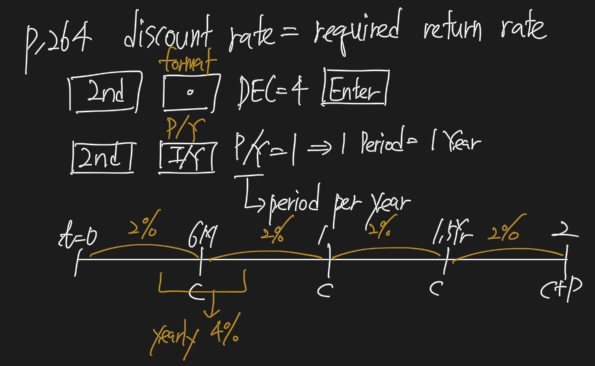 p.264 discount rate = required return rate
format
2nd . DEC=4 Enter
P/Y
2nd I/Y P/Y=1 ⇒ 1 Period = 1 Year
↳ period per year
t=0 2% 6M 2% 1 2% 1.5Yr 2% 2
C C C C+P
yearly 4%